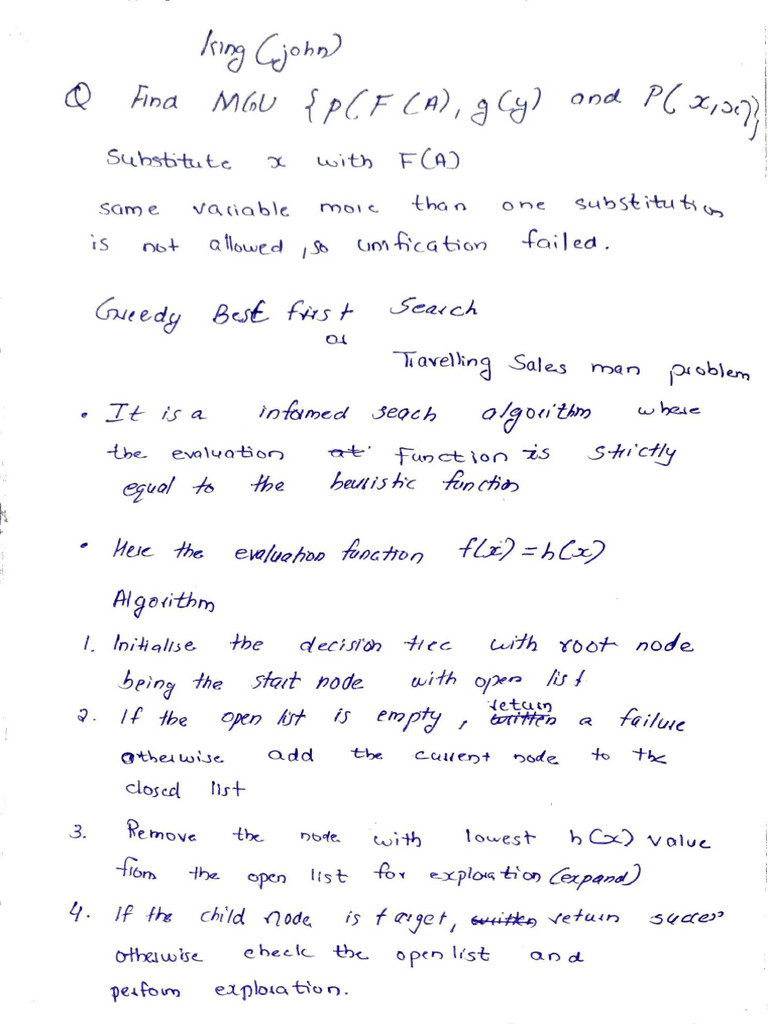 King(john)
Q Find MGU {P(F(A), g(y) and P(x,x)}
Substitute x with F(A)
same variable more than one substitution
is not allowed, so unification failed.
Greedy Best first Search
or
Travelling Sales man problem
• It is a informed seach algorithm where
the evaluation at function is strictly
equal to the heuristic function
• Here the evaluation function f(x) = h(x)
Algorithm
1. Initialise the decision tree with root node
being the start node with open list
return
2. If the open list is empty, written a failure
otherwise add the current node to the
closed list
3. Remove the node with lowest h(x) value
from the open list for exploration (expand)
4. If the child node is target, written return success
otherwise check the open list and
perform exploration.